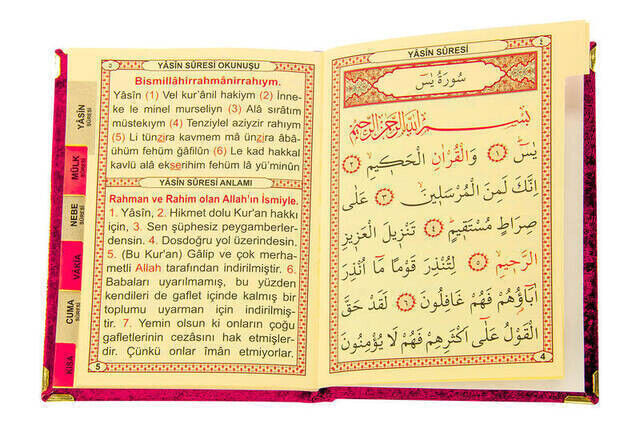 YÂSİN SÛRESİ
٤
سُورَةُ يٰسٓ
بِسْمِ اللّٰهِ الرَّحْمٰنِ الرَّحِيمِ
يٰسٓ ﴿١﴾ وَالْقُرْاٰنِ الْحَك۪يمِ ﴿٢﴾
اِنَّكَ لَمِنَ الْمُرْسَل۪ينَ ﴿٣﴾ عَلٰى
صِرَاطٍ مُسْتَق۪يمٍ ﴿٤﴾ تَنْز۪يلَ الْعَز۪يزِ
الرَّح۪يمِ ﴿٥﴾ لِتُنْذِرَ قَوْمًا مَٓا اُنْذِرَ
اٰبَٓاؤُ۬هُمْ فَهُمْ غَافِلُونَ ﴿٦﴾ لَقَدْ حَقَّ
الْقَوْلُ عَلٰٓى اَكْثَرِهِمْ فَهُمْ لَا يُؤْمِنُونَ
4
YÂSİN SÛRESİ OKUNUŞU
٥
Bismillâhirrahmânirrahıym.
Yâsîn (1) Vel kur'ânil hakiym (2) İnne-
ke le minel murseliyn (3) Alâ sırâtım
müstekıym (4) Tenziylel aziyzir rahıym
(5) Li tünzira kavmem mâ ünzira âbâ-
ühüm fehüm gâfilûn (6) Le kad hakkal
kavlü alâ ekserihim fehüm lâ yü'minûn
YÂSİN SÛRESİ ANLAMI
Rahman ve Rahim olan Allah'ın İsmiyle.
1. Yâsîn, 2. Hikmet dolu Kur'an hakkı
için, 3. Sen şüphesiz peygamberler-
densin. 4. Dosdoğru yol üzerindesin.
5. (Bu Kur'an) Gâlip ve çok merha-
metli Allah tarafından indirilmiştir. 6.
Babaları uyarılmamış, bu yüzden
kendileri de gaflet içinde kalmış bir
toplumu uyarman için indirilmiş-
tir. 7. Yemin olsun ki onların çoğu
gafletlerinin cezâsını hak etmişler-
dir. Çünkü onlar îmân etmiyorlar.
5
YÂSİN
SÛRESİ
MÜLK
SÛRESİ
NEBE
SÛRESİ
VÂKIA
CUMA
SÛRESİ
KISA